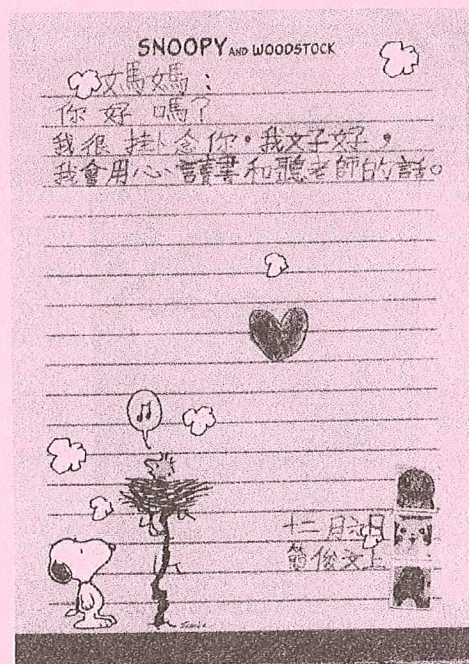 SNOOPY AND WOODSTOCK
媽媽：
你好嗎？
我很掛念你。我好好，
我會用心讀書和聽老師的話。
十二月六日
俊文上